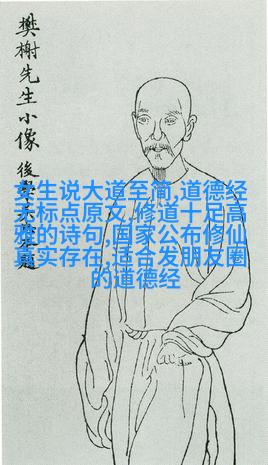 樊榭先生小像
後學
女生说大道至简,道德经
无标点原文,修道十足高
雅的诗句,国家公布修仙
真实存在,适合发朋友圈
的道德经